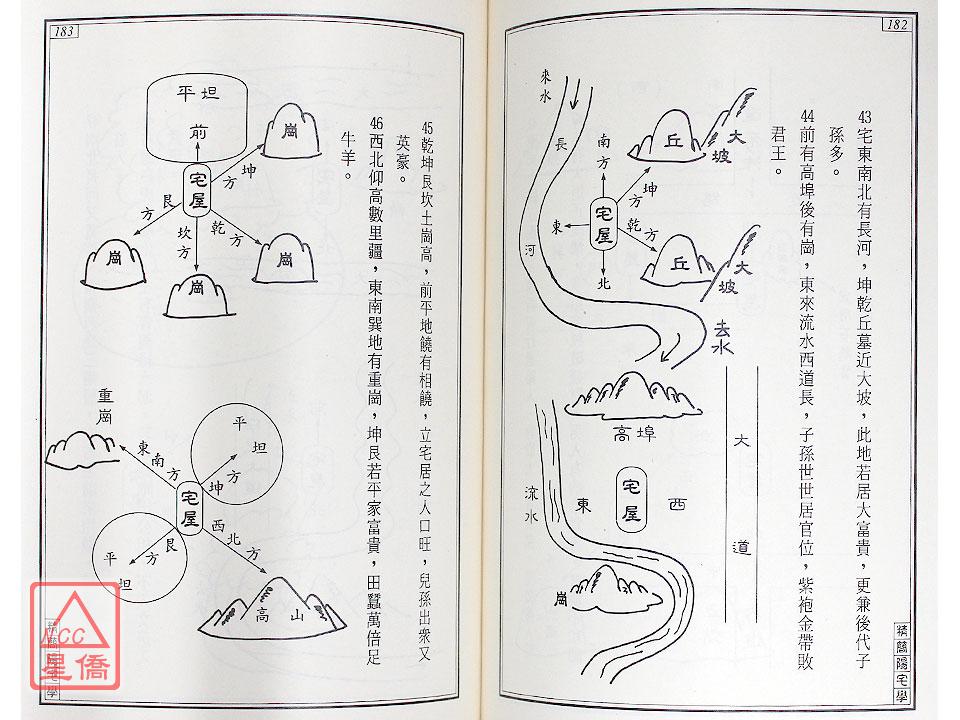 182
43宅東南北有長河，坤乾丘墓近大坡，此地若居大富貴，更兼後代子
孫多。
44前有高埠後有崗，東來流水西道長，子孫世世居官位，紫袍金帶敗
君王。
來水
長
河
南方
東
北
坤方
乾方
宅屋
丘
大坡
丘
大坡
去水
高埠
流水
東
宅屋
西
大道
崗
精髓陽宅學
183
45乾坤艮坎土崗高，前平地饒有相饒，立宅居之人口旺，兒孫出衆又
英豪。
46西北仰高數里疆，東南巽地有重崗，坤艮若平家富貴，田蠶萬倍足
牛羊。
平坦
前
宅屋
坤方
艮方
坎方
乾方
崗
崗
崗
崗
重崗
東南方
平坦
坤方
宅屋
西北方
艮方
平坦
高山
精髓陽宅學
NCC
星僑